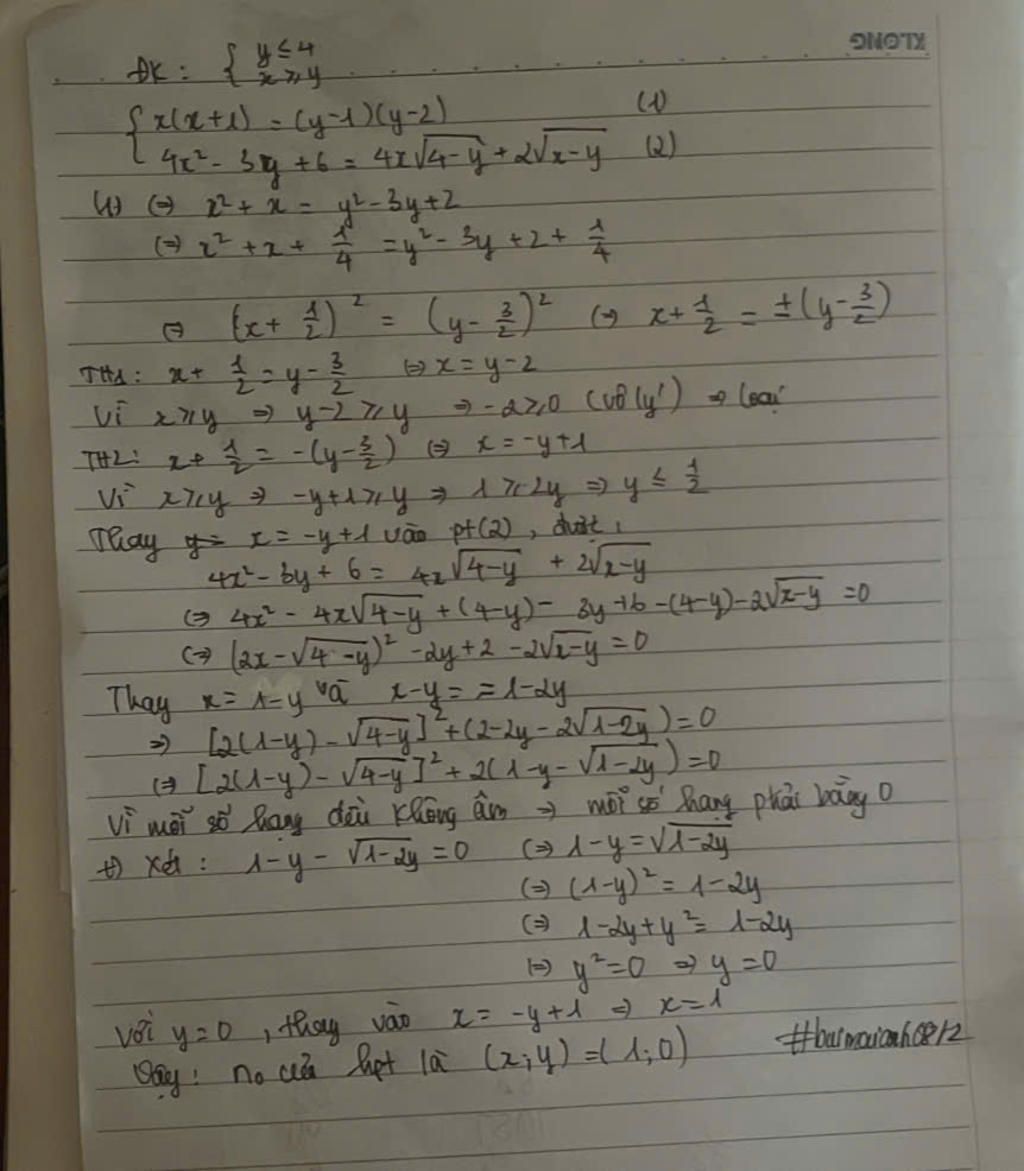 KLONG
ĐK: { y ≤ 4
x ≥ y
{ x(x+1) = (y-1)(y-2) (1)
4x² - 3y + 6 = 4x√(4-y) + 2√(x-y) (2)
(1) (⇒) x² + x = y² - 3y + 2
(⇒) x² + x + 1/4 = y² - 3y + 2 + 1/4
(⇒) (x + 1/2)² = (y - 3/2)² (⇒) x + 1/2 = ±(y - 3/2)
TH1: x + 1/2 = y - 3/2 (⇒) x = y - 2
Vì x ≥ y ⇒ y - 2 ≥ y ⇒ -2 ≥ 0 (vô lý) ⇒ loại
TH2: x + 1/2 = -(y - 3/2) (⇒) x = -y + 1
Vì x ≥ y ⇒ -y + 1 ≥ y ⇒ 1 ≥ 2y ⇒ y ≤ 1/2
Thay x = -y + 1 vào pt(2), được:
4x² - 3y + 6 = 4x√(4-y) + 2√(x-y)
(⇒) 4x² - 4x√(4-y) + (4-y) - 3y + 6 - (4-y) - 2√(x-y) = 0
(⇒) (2x - √(4-y))² - 2y + 2 - 2√(x-y) = 0
Thay x = 1-y và x-y = = 1-2y
⇒ [2(1-y) - √(4-y)]² + (2-2y - 2√(1-2y)) = 0
(⇒ [2(1-y) - √(4-y)]² + 2(1-y - √(1-2y)) = 0
Vì mỗi số hạng đều không âm ⇒ mỗi số hạng phải bằng 0
+) Xét: 1-y - √(1-2y) = 0 (⇒) 1-y = √(1-2y)
(⇒) (1-y)² = 1-2y
(⇒) 1-2y+y² = 1-2y
(⇒) y² = 0 ⇒ y = 0
Với y = 0, thay vào x = -y + 1 ⇒ x = 1
Vậy: no của hpt là (x;y) = (1;0)